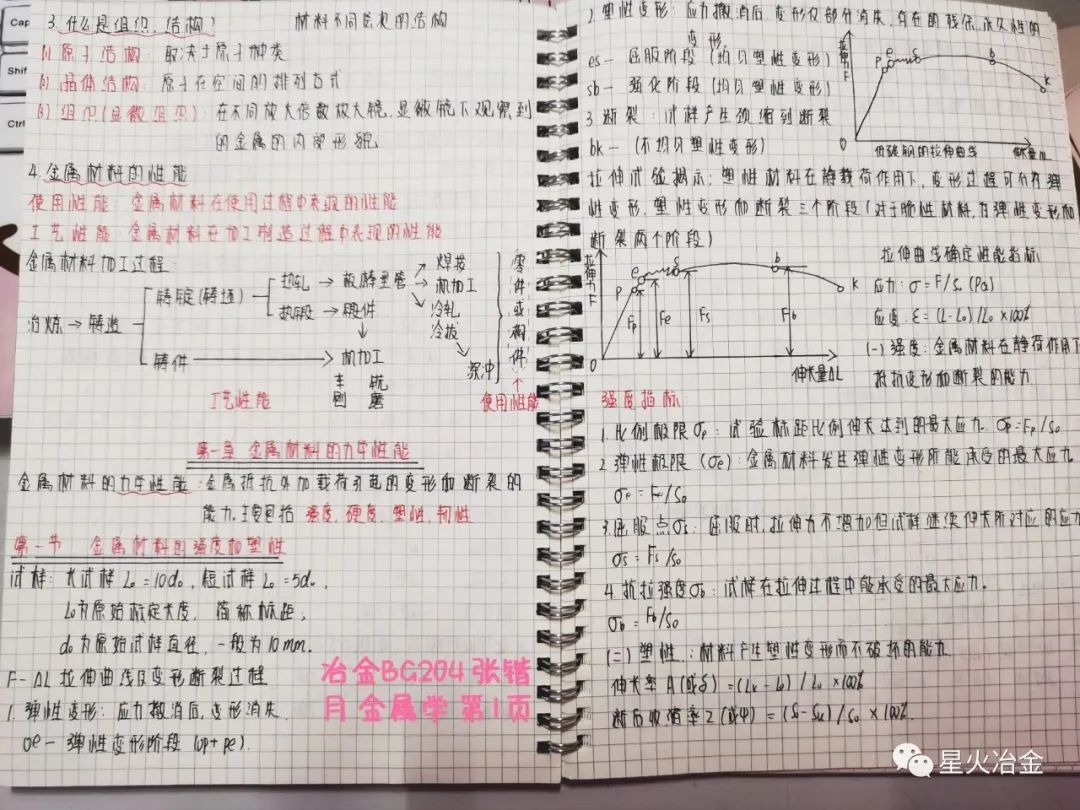 3.什么是组织、结构? 材料不同层次的结构
(1) 原子结构: 取决于原子种类
(2) 晶体结构: 原子在空间的排列方式
(3) 组织(显微组织): 在不同放大倍数放大镜、显微镜下观察到
的金属的内部形貌
4.金属材料的性能
使用性能: 金属材料在使用过程中表现的性能
工艺性能: 金属材料在加工制造过程中表现的性能
金属材料加工过程:
冶炼→铸造
铸锭(铸坯)
热轧→板棒型管
热锻→锻件
焊接
机加工
冷轧
冷拔
深冲
零件或构件
铸件→机加工
车 铣
刨 磨
工艺性能
使用性能
第一章 金属材料的力学性能
金属材料的力学性能: 金属抵抗外加载荷引起的变形和断裂的
能力,主要包括 强度、硬度、塑性、韧性
第一节 金属材料的强度和塑性
试样: 长试样 L₀=10d₀, 短试样 L₀=5d₀,
L₀为原始标定长度, 简称标距,
d₀为原始试样直径, 一般为10mm.
F-ΔL拉伸曲线及变形断裂过程
1. 弹性变形: 应力撤消后,变形消失.
oe— 弹性变形阶段 (op+pe).
冶金BG204张锴
月 金属学 第1页
2.塑性变形: 应力撤消后变形仅部分消失,存在的残余、永久性的
变形,
es— 屈服阶段(均匀塑性变形)
sb— 强化阶段(均匀塑性变形)
3 断裂: 试样产生颈缩到断裂
bk— (不均匀塑性变形)
拉伸力F
p e s b k
0
低碳钢的拉伸曲线 伸长量ΔL
拉伸试验揭示: 塑性材料在静载荷作用下,变形过程可分为弹
性变形、塑性变形和断裂三个阶段(对于脆性材料,有弹性变形和
断裂两个阶段)
拉伸力F
p e s b k
Fp Fe Fs Fb
0
伸长量ΔL
拉伸曲线确定性能指标
应力: σ=F/S₀ (Pa)
应变: ε=(L-L₀)/L₀×100%
(一)强度: 金属材料在静荷作用下
抵抗变形和断裂的能力
强度指标:
1.比例极限σp: 试验标距比例伸长达到的最大应力. σp=Fp/S₀
2 弹性极限(σe): 金属材料发生弹性变形所能承受的最大应力
σe=Fe/S₀
3.屈服点σs: 屈服时,拉伸力不增加但试样继续伸长所对应的应力
σs=Fs/S₀
4.抗拉强度σb: 试样在拉伸过程中能承受的最大应力.
σb=Fb/S₀
(二)塑性: 材料产生塑性变形而不破坏的能力
伸长率A(或δ)=(Lk-L₀)/L₀×100%
断面收缩率Z(或ψ)=(S₀-Sk)/S₀×100%.
星火冶金
Cap
Shift
Ctrl